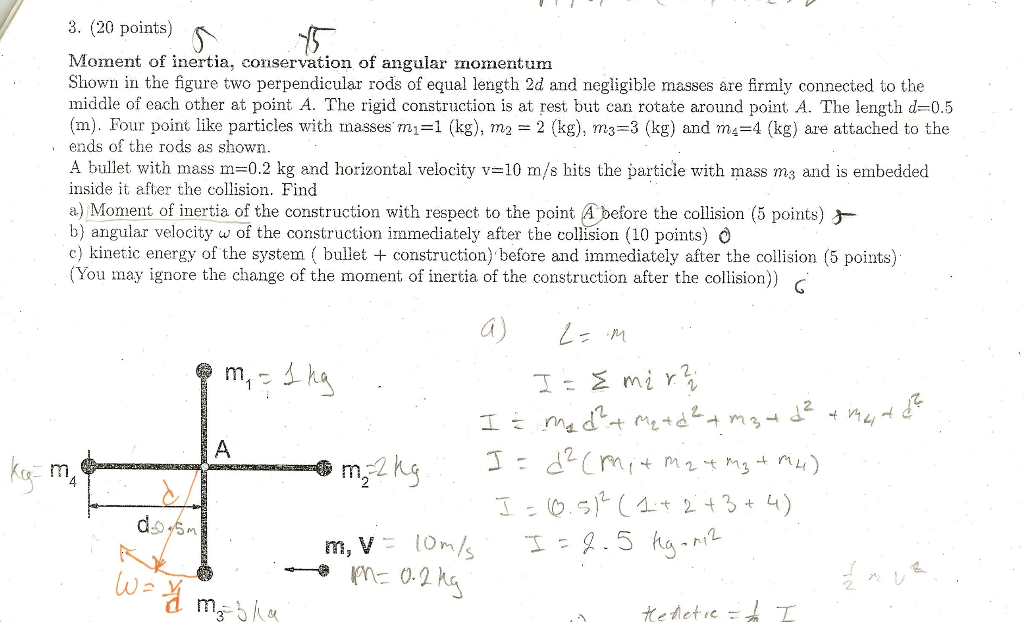 3. (20 points)
5 15
Moment of inertia, conservation of angular momentum
Shown in the figure two perpendicular rods of equal length 2d and negligible masses are firmly connected to the
middle of each other at point A. The rigid construction is at rest but can rotate around point A. The length d=0.5
(m). Four point like particles with masses m₁=1 (kg), m₂ = 2 (kg), m₃=3 (kg) and m₄=4 (kg) are attached to the
ends of the rods as shown.
A bullet with mass m=0.2 kg and horizontal velocity v=10 m/s hits the particle with mass m₃ and is embedded
inside it after the collision. Find
a) Moment of inertia of the construction with respect to the point A before the collision (5 points) 5
b) angular velocity ω of the construction immediately after the collision (10 points) 0
c) kinetic energy of the system ( bullet + construction) before and immediately after the collision (5 points)
(You may ignore the change of the moment of inertia of the construction after the collision))
a) L = m
m₁ = 1 kg
I = Σ mi r²i
I = m₁d² + m₂+d² + m₃+d² + m₄+d²
A
kg= m₄
m₂=2 kg
I = d²(m₁+ m₂ + m₃ + m₄)
I = (0.5)² (1 + 2 + 3 + 4)
d=0.5m
m, v = 10m/s
I = 2.5 kg-m²
m= 0.2 kg
½ m v²
ω = v/d
m₃=3 kg
I